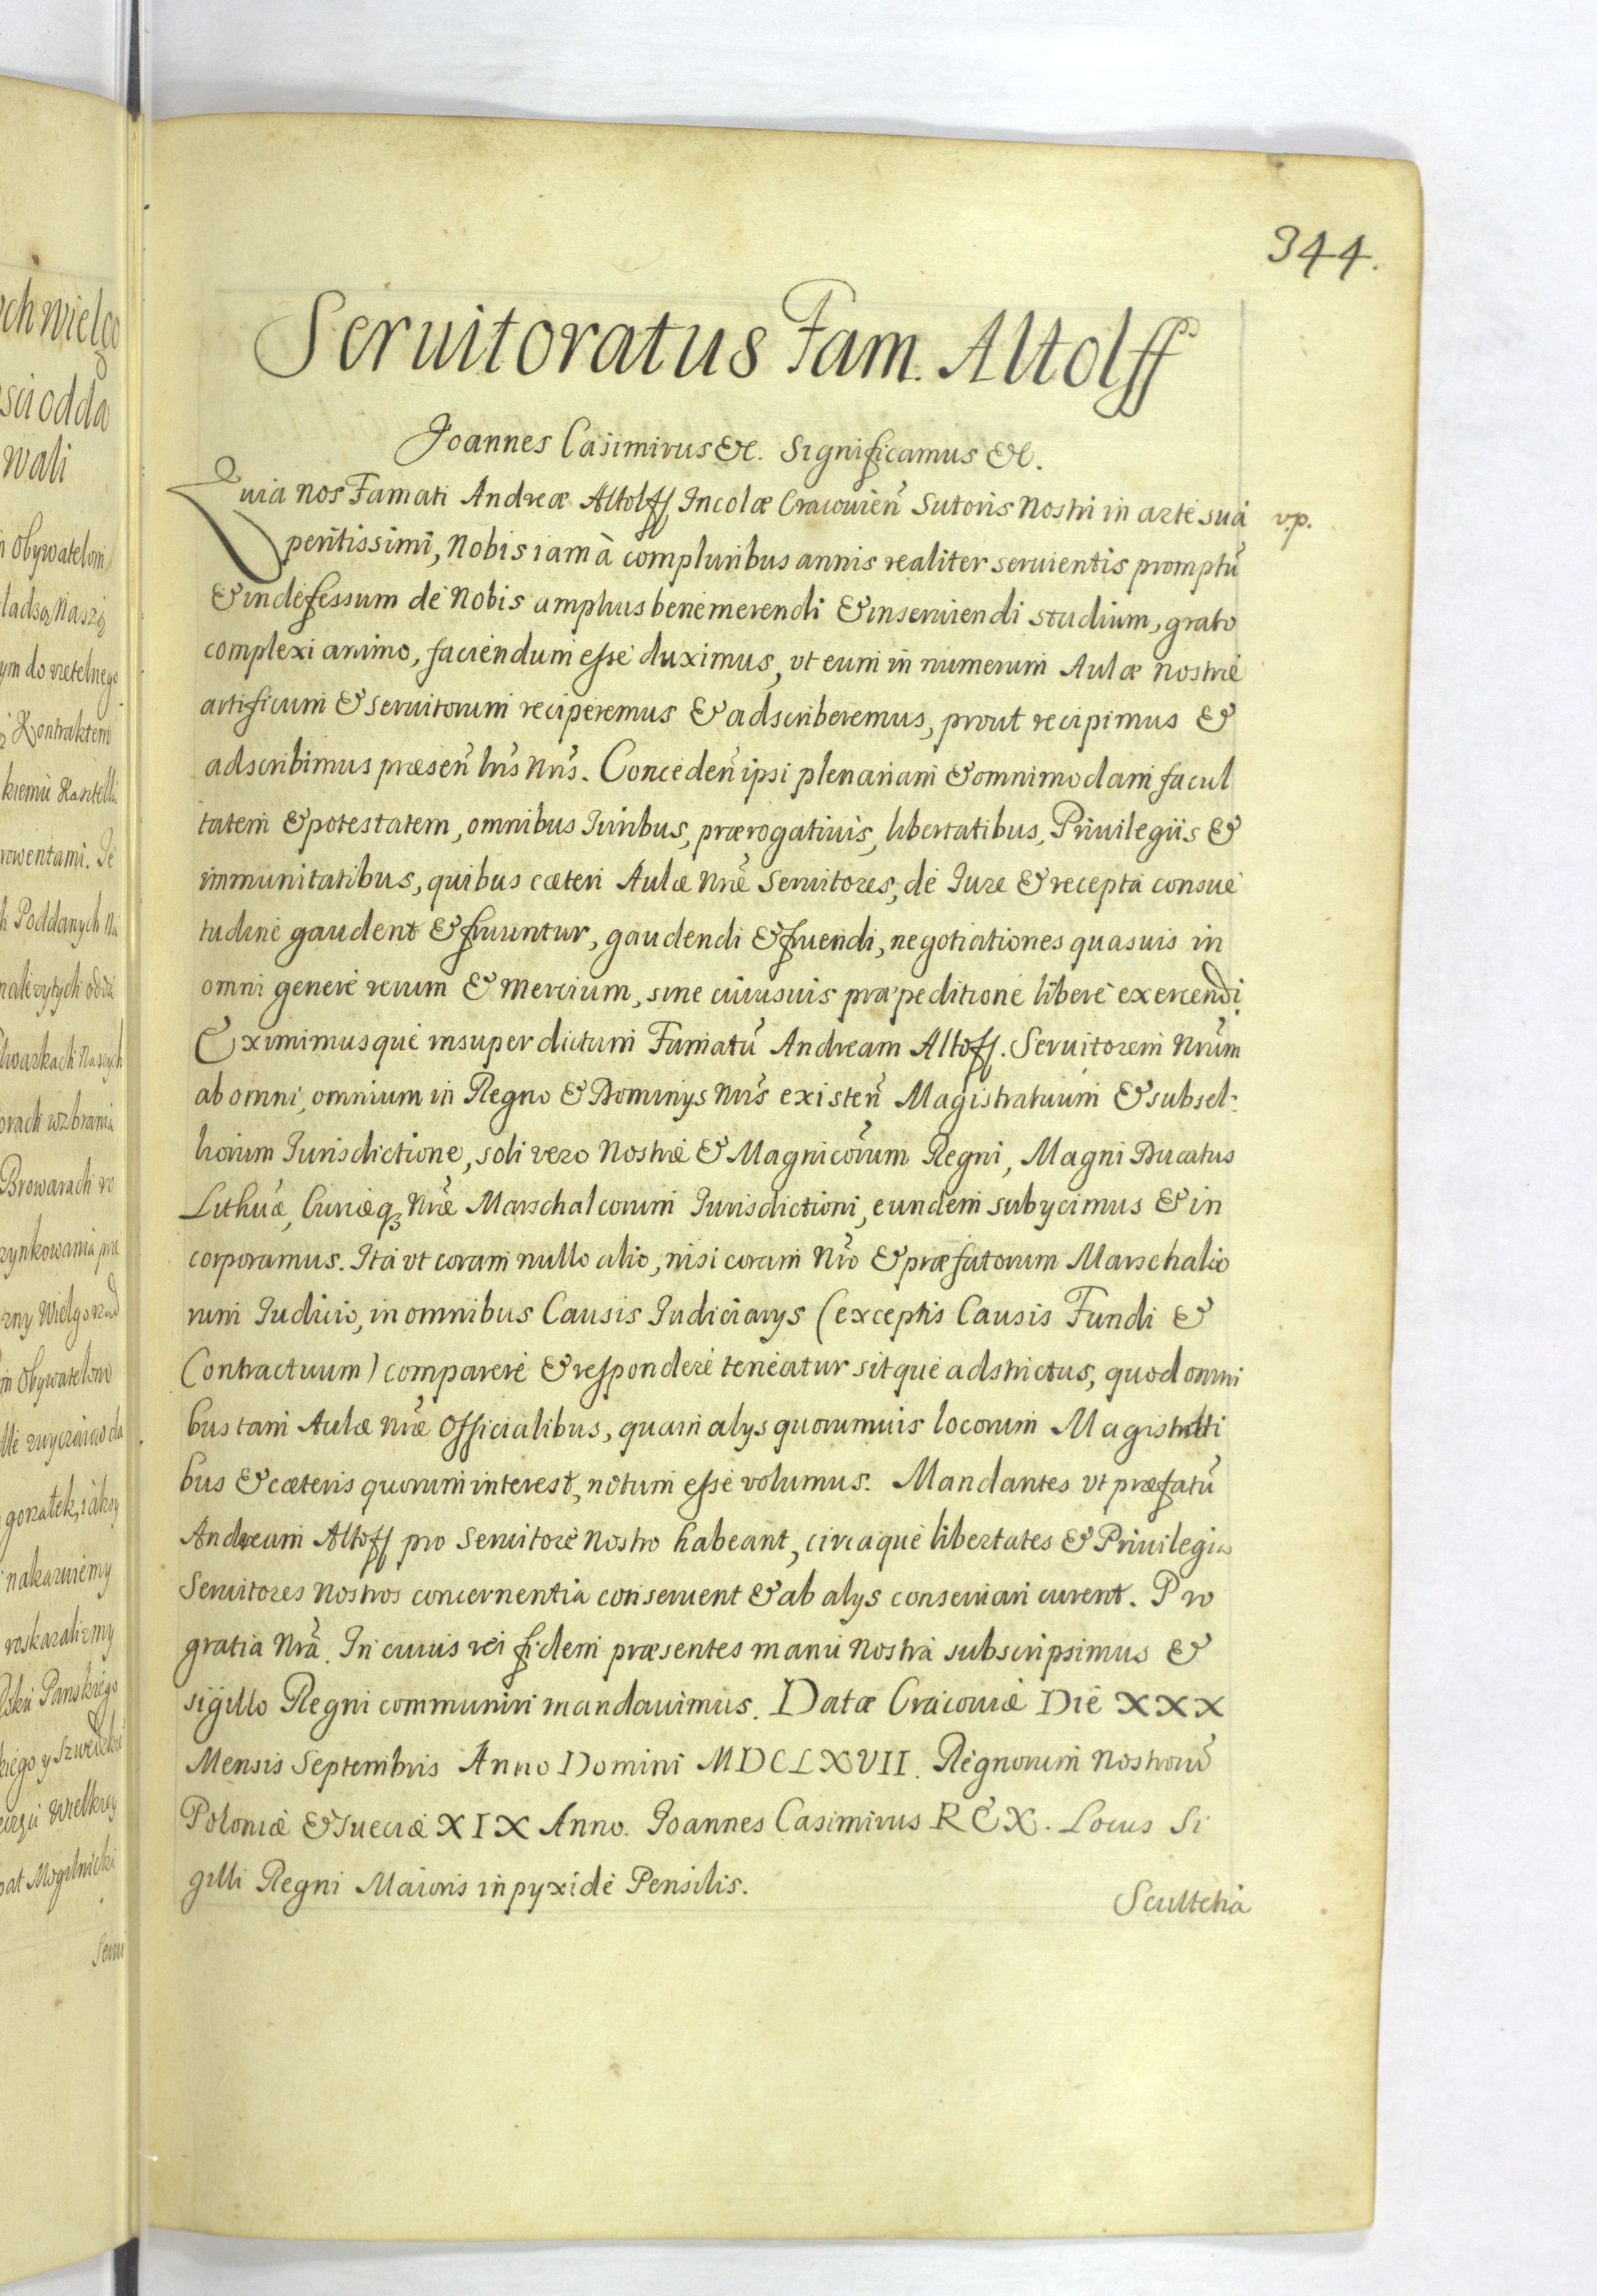 344.
Seruitoratus Fam. Altolff
Joannes Casimirus &c. Significamus &c.
Quia nos Famati Andreæ Altolff Incolæ Cracouien̄ Sutoris Nostri in arte sua v.p.
peritissimi, Nobis iam à compluribus annis realiter seruientis promptū
& indefessum de Nobis amplius benemerendi & inseruiendi studium, grato
complexi animo, faciendum esse duximus, vt eum in numerum Aulæ Nostræ
artificum & seruitorum reciperemus & adscriberemus, prout recipimus &
adscribimus præsen̄ lr̄is nr̄is. Conceden̄ ipsi plenariam & omnimodam facul
tatem & potestatem, omnibus Iuribus, prærogatiuis, libertatibus, Priuilegiis &
immunitatibus, quibus cæteri Aulæ Nr̄æ Seruitores, de Iure & recepta consue
tudine gaudent & fruuntur, gaudendi & fruendi, negotiationes quasuis in
omni genere rerum & Mercium, sine cuiusuis præpeditione libere exercendi.
Eximimusque insuper dictum Famatū Andream Altoff. Seruitorem Nr̄um
ab omni, omnium in Regno & Dominys Nr̄is existen̄ Magistratuum & subsel:
liorum Iurisdictione, soli vero Nostræ & Magnicorum Regni, Magni Ducatus
Lithuæ, Curiæq₃ Nr̄æ Marschalcorum Iurisdictioni, eundem subycimus & in
corporamus. Ita vt coram nullo alio, nisi coram Nr̄o & præfatorum Marschalco
rum Iudicio, in omnibus Causis Iudiciarys (exceptis Causis Fundi &
Contractuum) comparere & respondere teneatur sitque adstrictus, quod omni
bus tam Aulæ Nr̄æ Officialibus, quam alys quorumuis locorum Magistrati
bus & cæteris quorum interest, notum esse volumus. Mandantes vt præfatū
Andream Altoff pro Seruitore Nostro habeant, circaque libertates & Priuilegia
Seruitores Nostros concernentia conseruent & ab alys conseruari curent. Pro
gratia Nr̄a. In cuius rei fidem præsentes manu Nostra subscripsimus &
sigillo Regni communiri mandauimus. Datæ Cracouiæ Die XXX
Mensis Septembris Anno Domini MDCLXVII. Regnorum Nostrorū
Poloniæ & Sueciæ XIX Anno. Joannes Casimirus REX. Locus Si
gilli Regni Maioris in pyxide Pensilis.
Scultetia